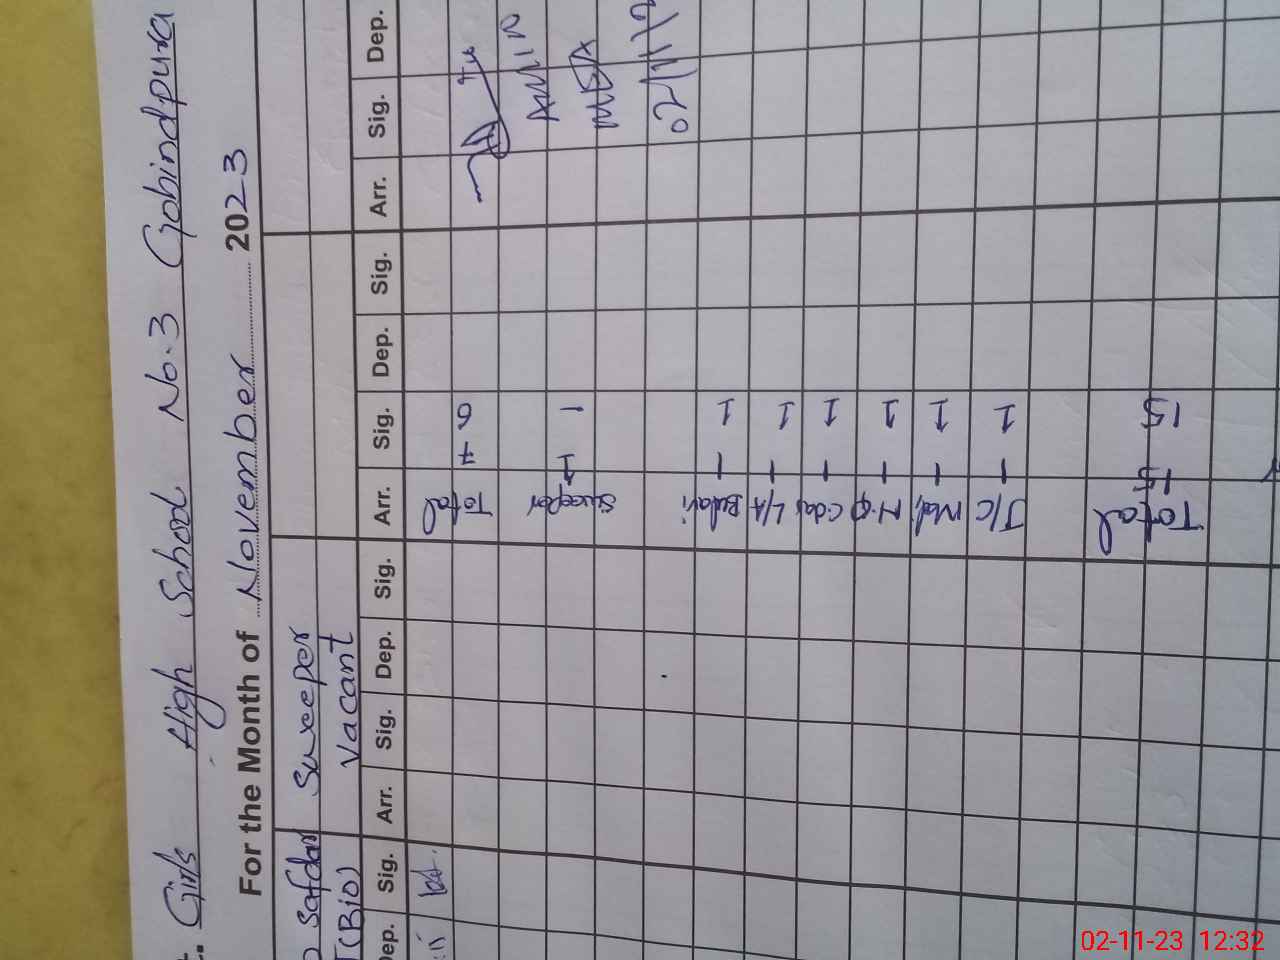 t. Girls High School No.3 Gobindpura
For the Month of November 2023
Safdar Sweeper
(Bio) Vacant
Dep. Sig. Arr. Sig. Dep. Sig. Arr. Sig. Dep. Sig. Arr. Sig. Dep.
Total 7 6
Sweeper 1 1
AMIN
02/11/2
1 1
L/A 1 1
1 1
N.Q 1 1
1 1
J/C 1 1
Total 15 15
02-11-23 12:32